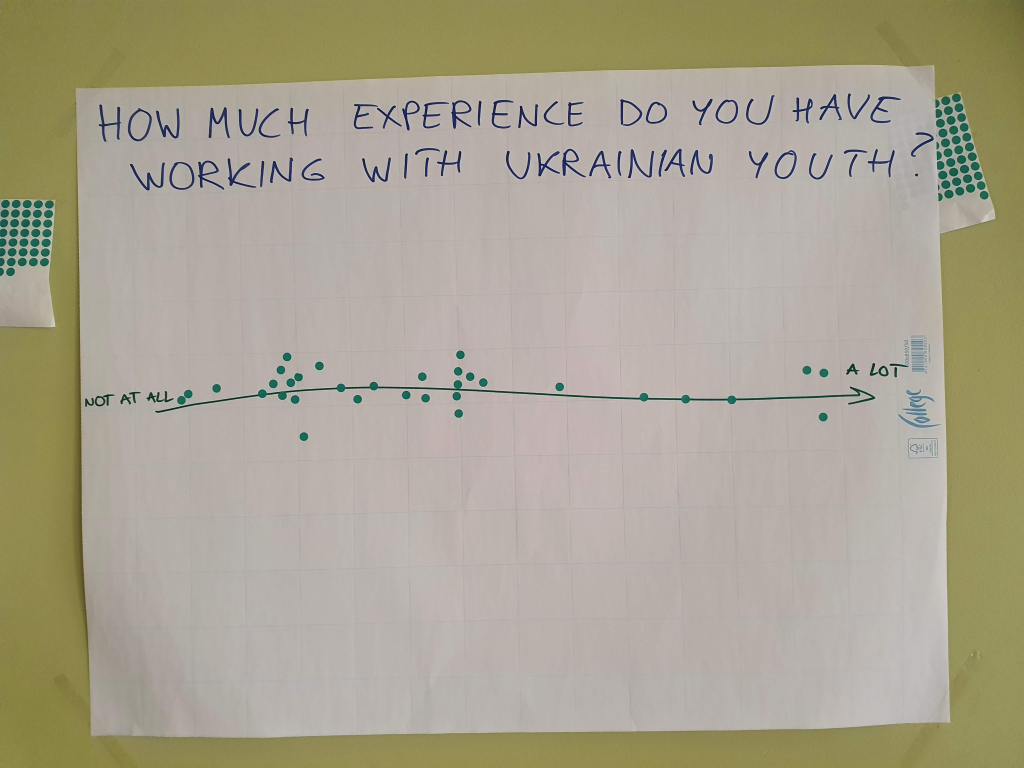 HOW MUCH EXPERIENCE DO YOU HAVE
WORKING WITH UKRAINIAN YOUTH?
NOT AT ALL
A LOT
College